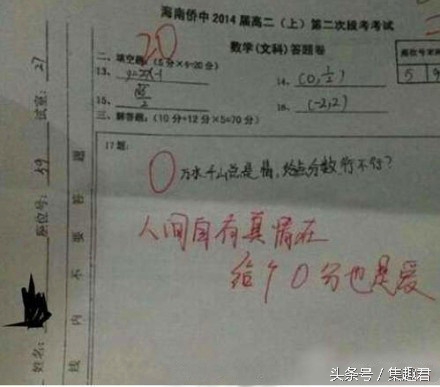 海南侨中2014届高二（上）第二次段考考试
数学(文科)答题卷
20
二、填空题（5分×4=20分）
13、y=2x-1
14、(0,1/2)
15、
16、(-2,2)
三、解答题：（10分+12分×5=70分）
17题:
0
万水千山总是情,给点分数行不行?
人间自有真情在
给个0分也是爱
试室: 27
座位号: 39
姓名:
答题
不要
线内
头条号 / 集趣君